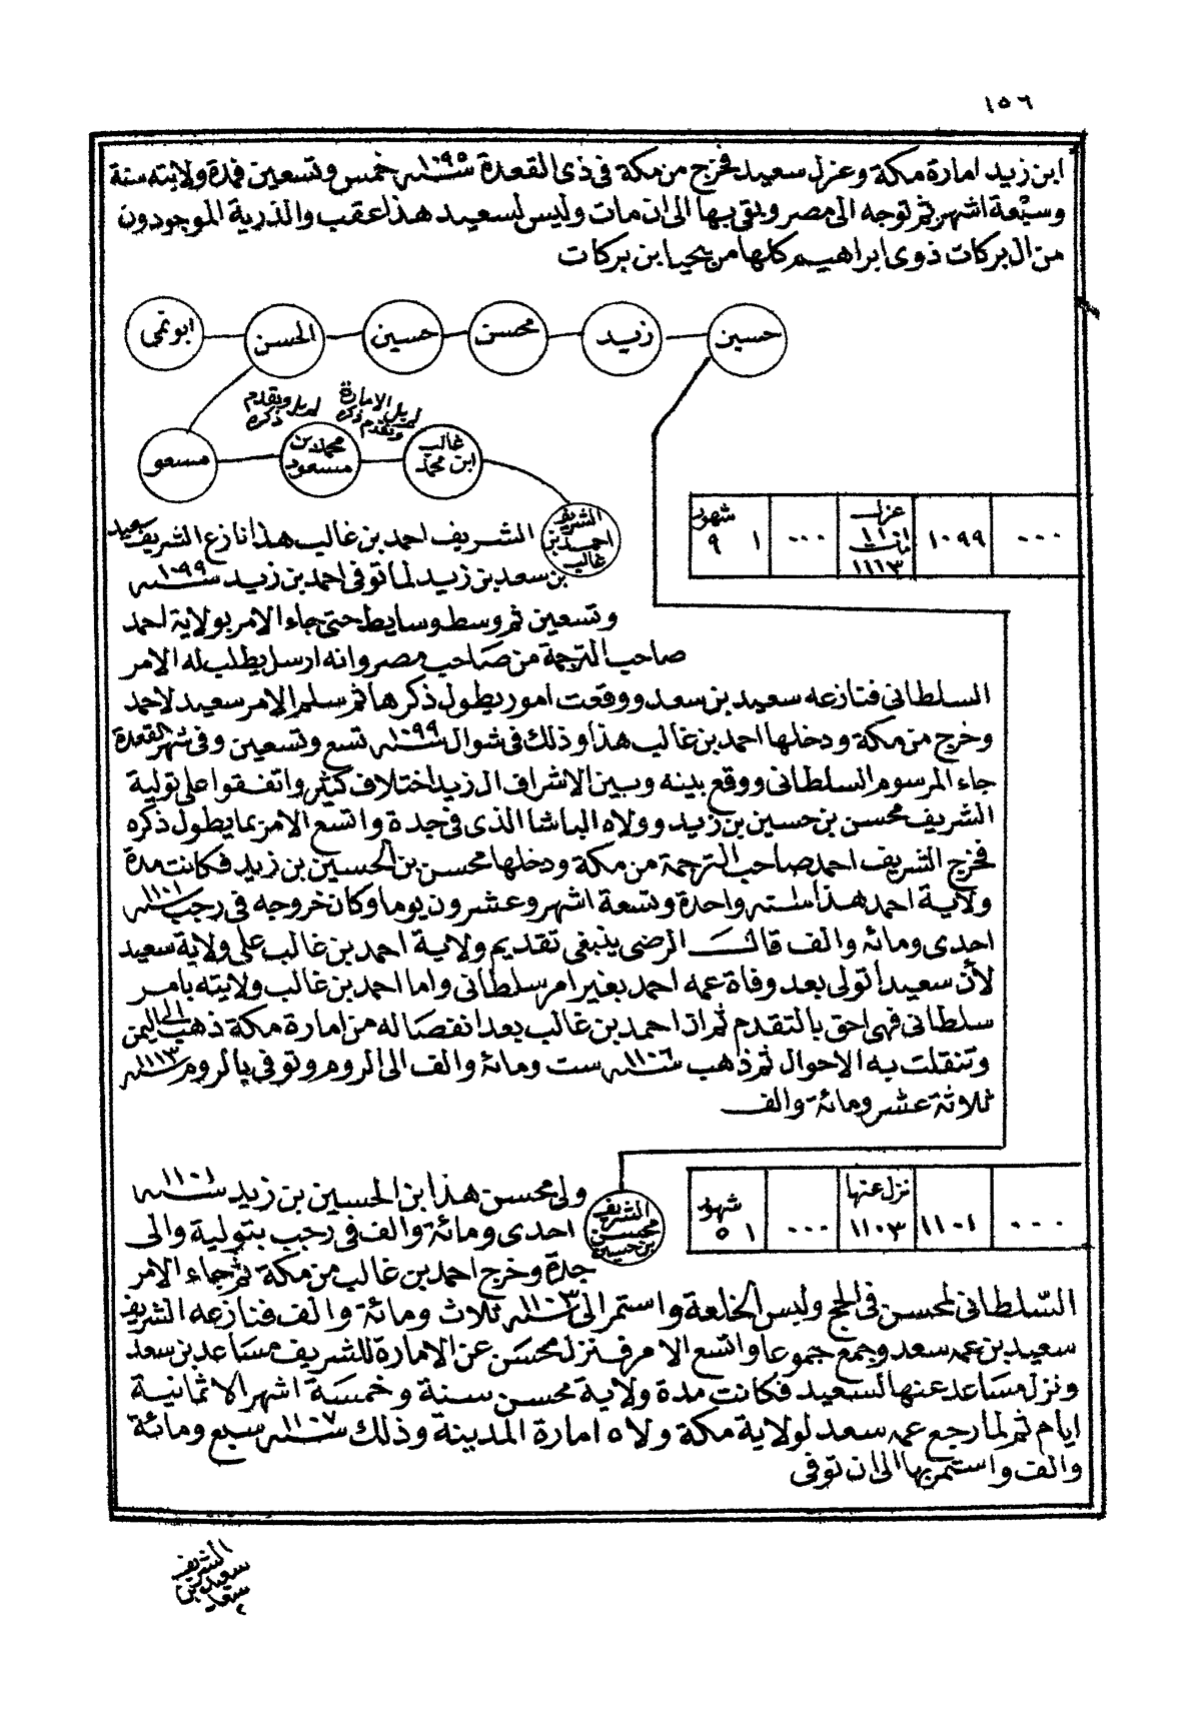 ١٥٦
ابن زيد امارة مكة وعزل سعيد فخرج من مكة في ذي القعدة سنة ١٠٩٥ خمس وتسعين فمدة ولايته سنة
وسبعة اشهر ثم توجه الى مصر وبقى بها الى ان مات وليس لسعيد هذا عقب والذرية الموجودون
من ال بركات ذوي ابراهيم كلها من يحيا ابن بركات
حسين زيد محسن حسين الحسن ابونمى
لم يل الامارة وتقدم ذكره
لم يل وتقدم ذكره
غالب ابن محمد
محمد بن مسعود
مسعو
الشريف احمد بن غالب
... ١٠٩٩ عزل ١١٠١ مات ١١١٣ ... ١ شهور ٩
الشريف احمد بن غالب هذا نازع الشريف سعيد
بن سعد بن زيد لما توفى احمد بن زيد سنة ١٠٩٩
وتسعين ثم وسط وسايط حتى جاء الامر بولاية احمد
صاحب الترجمة من صاحب مصر وانه ارسل يطلب له الامر
السلطاني فنازعه سعيد بن سعد ووقعت امور يطول ذكرها ثم سلم الامر سعيد لاحمد
وخرج من مكة ودخلها احمد بن غالب هذا وذلك في شوال سنة ١٠٩٩ تسع وتسعين وفي شهر القعدة
جاء المرسوم السلطاني ووقع بينه وبين الاشراف ال زيد اختلاف كثير واتفقوا على تولية
الشريف محسن بن حسين بن زيد وولاه الباشا الذي في جدة واتسع الامر بما يطول ذكره
فخرج الشريف احمد صاحب الترجمة من مكة ودخلها محسن بن الحسين بن زيد فكانت مدة
ولاية احمد هذا سنه واحدة وتسعة اشهر وعشرون يوما وكان خروجه في رجب سنة ١١٠١
احدى ومائه والف قالت الرضى ينبغي تقديم ولاية احمد بن غالب على ولاية سعيد
لأن سعيدا تولى بعد وفاة عمه احمد بغير امر سلطاني واما احمد بن غالب ولايته بامر
سلطاني فهي احق بالتقدم ثم ان احمد بن غالب بعد انفصاله من امارة مكة ذهب الى اليمن
وتنقلت به الاحوال ثم ذهب سنة ١١٠٦ ست ومائة والف الى الروم وتوفي بالروم سنة ١١١٣
ثلاثة عشر ومائة والف
الشريف محسن بن حسين
... ١١٠١ نزل عنها ١١٠٣ ... ١ شهور ٥
ولي محسن هذا ابن الحسين بن زيد سنة ١١٠١
احدى ومائة والف في رجب بتولية والى
جدة وخرج احمد بن غالب من مكة ثم جاء الامر
السّلطاني لمحسن في الحج ولبس الخلعة واستمر الى سنة ١١٠٣ ثلاث ومائة والف فنازعه الشريف
سعيد بن عمه سعد وجمع جموعا واتسع الامر فنزل محسن عن الامارة للشريف مساعد بن سعد
ونزل مساعد عنها لسعيد فكانت مدة ولاية محسن سنة وخمسة اشهر الا ثمانية
ايام ثم لما رجع عمه سعد لولاية مكة ولاه امارة المدينة وذلك سنة ١١٠٧ سبع ومائة
والف واستمر بها الى ان توفى
الشريف سعيد بن سعد